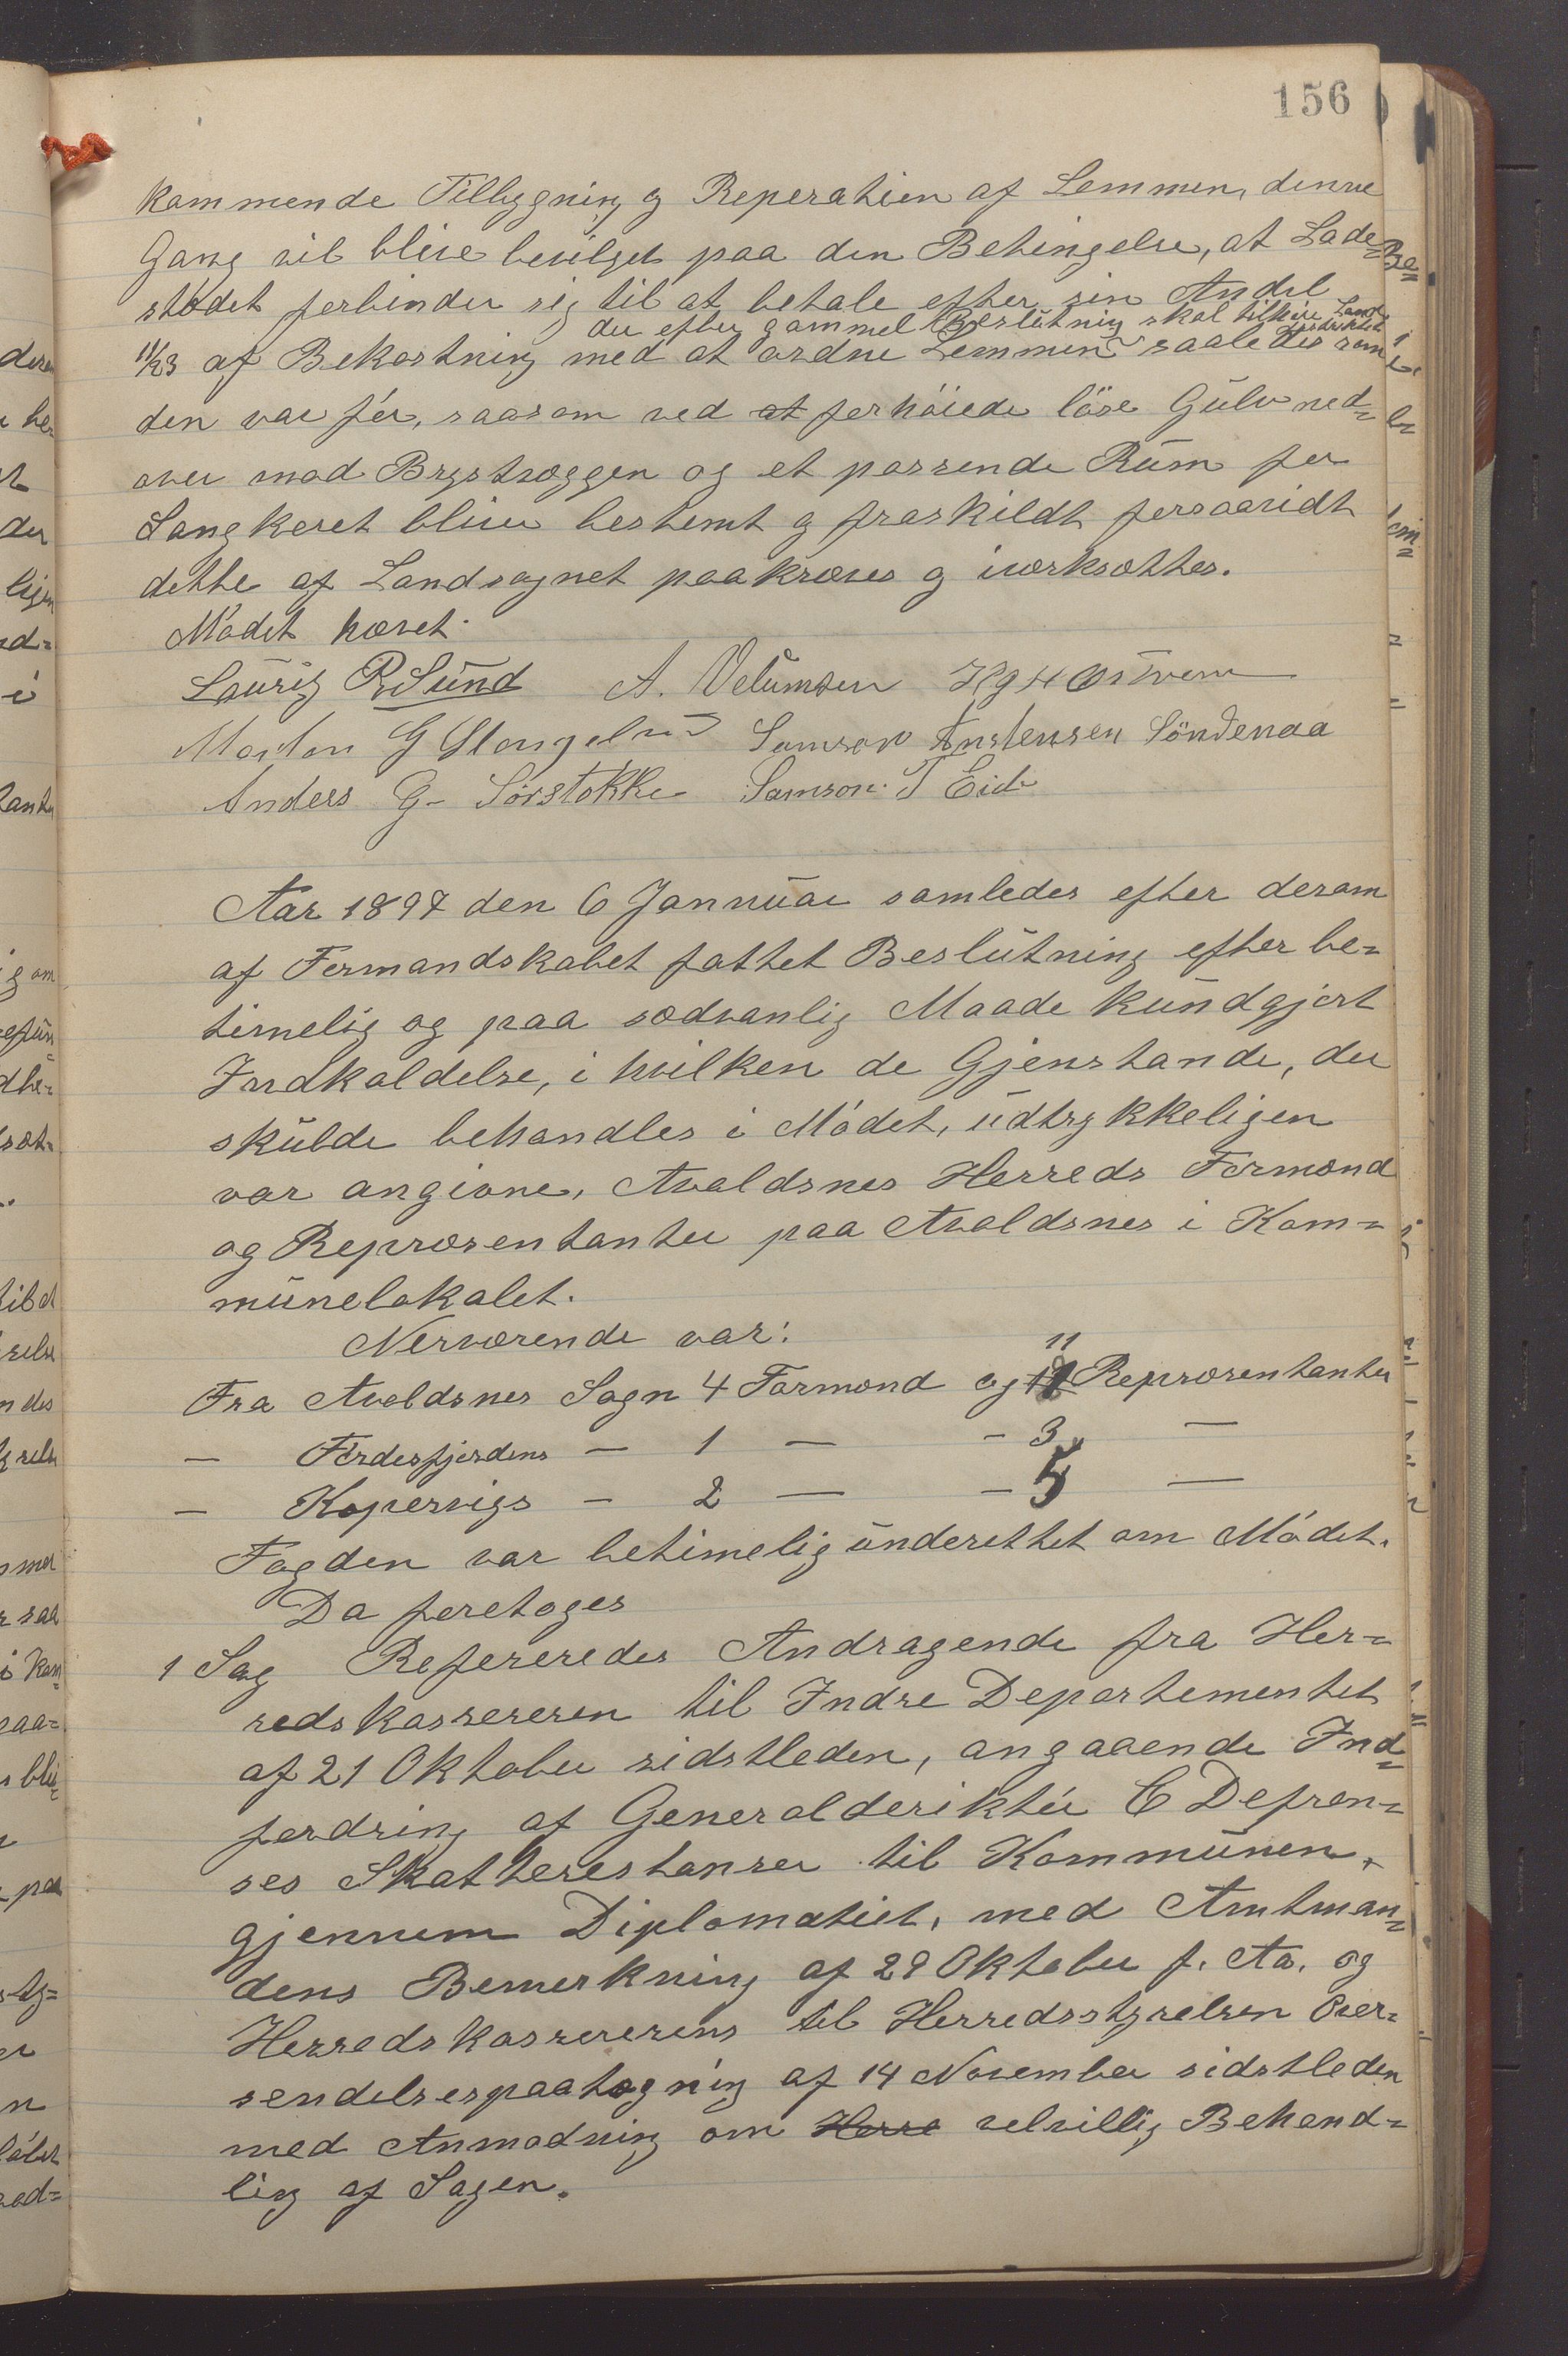 156
kommende Tilbygning og Reperation af Lemmen, denne
Gang vil blive bevilget paa den Betingelse, at Lade-
stedet forbinder sig til at betale efter sin Andel
der efter gammel Beslutning skal tilhøre Land-
distriktet
11/23 af Bekostning med at ordne Lemmen saaledes som
den var før, saasom ved at forhøiede løse Gulv ned-
over mod Brystvæggen og et passende Rum for
Sangkoret bliver bestemt og fraskildt forsaavidt
dette af Landsognet paakræves og iværksættes.
Mødet hævet.
Lauritz R Sund A. Velumsen
Morten G Stangeland Samson Anstensen Søndenaa
Anders G. Sørstokke Samson. T Eide
Aar 1897 den 6 Januar samledes efter derom
af Formandskabet fattet Beslutning efter be-
timelig og paa sædvanlig Maade kundgjort
Indkaldelse, i hvilken de Gjenstande, der
skulde behandles i Mødet, udtrykkeligen
var angivne, Avaldsnes Herreds Formænd
og Repræsentanter paa Avaldsnes i Kom-
munelokalet.
Nerværende var:
Fra Avaldsnes Sogn 4 Formænd og 11 Repræsentanter
— Førdesfjordens — 1 — - 3 —
— Kopervigs — 2 — - 5 —
Fogden var betimelig underettet om Mødet.
Da foretoges
1 Sag Refereredes Andragende fra Her-
redskassereren til Indre Departementet
af 21 Oktober sidstleden, angaaende Ind-
fordring af Generalderiktør C Defren-
ses Skatterestanser til Kommunen,
gjennem Diplomatiet, med Amtman-
dens Bemerkning af 29 Oktober f. Aa. og
Herredskassererens til Herredsstyrelsen Over-
sendelsespaategning af 14 November sidstleden
med Anmodning om Herre velvillig Behand-
ling af Sagen.